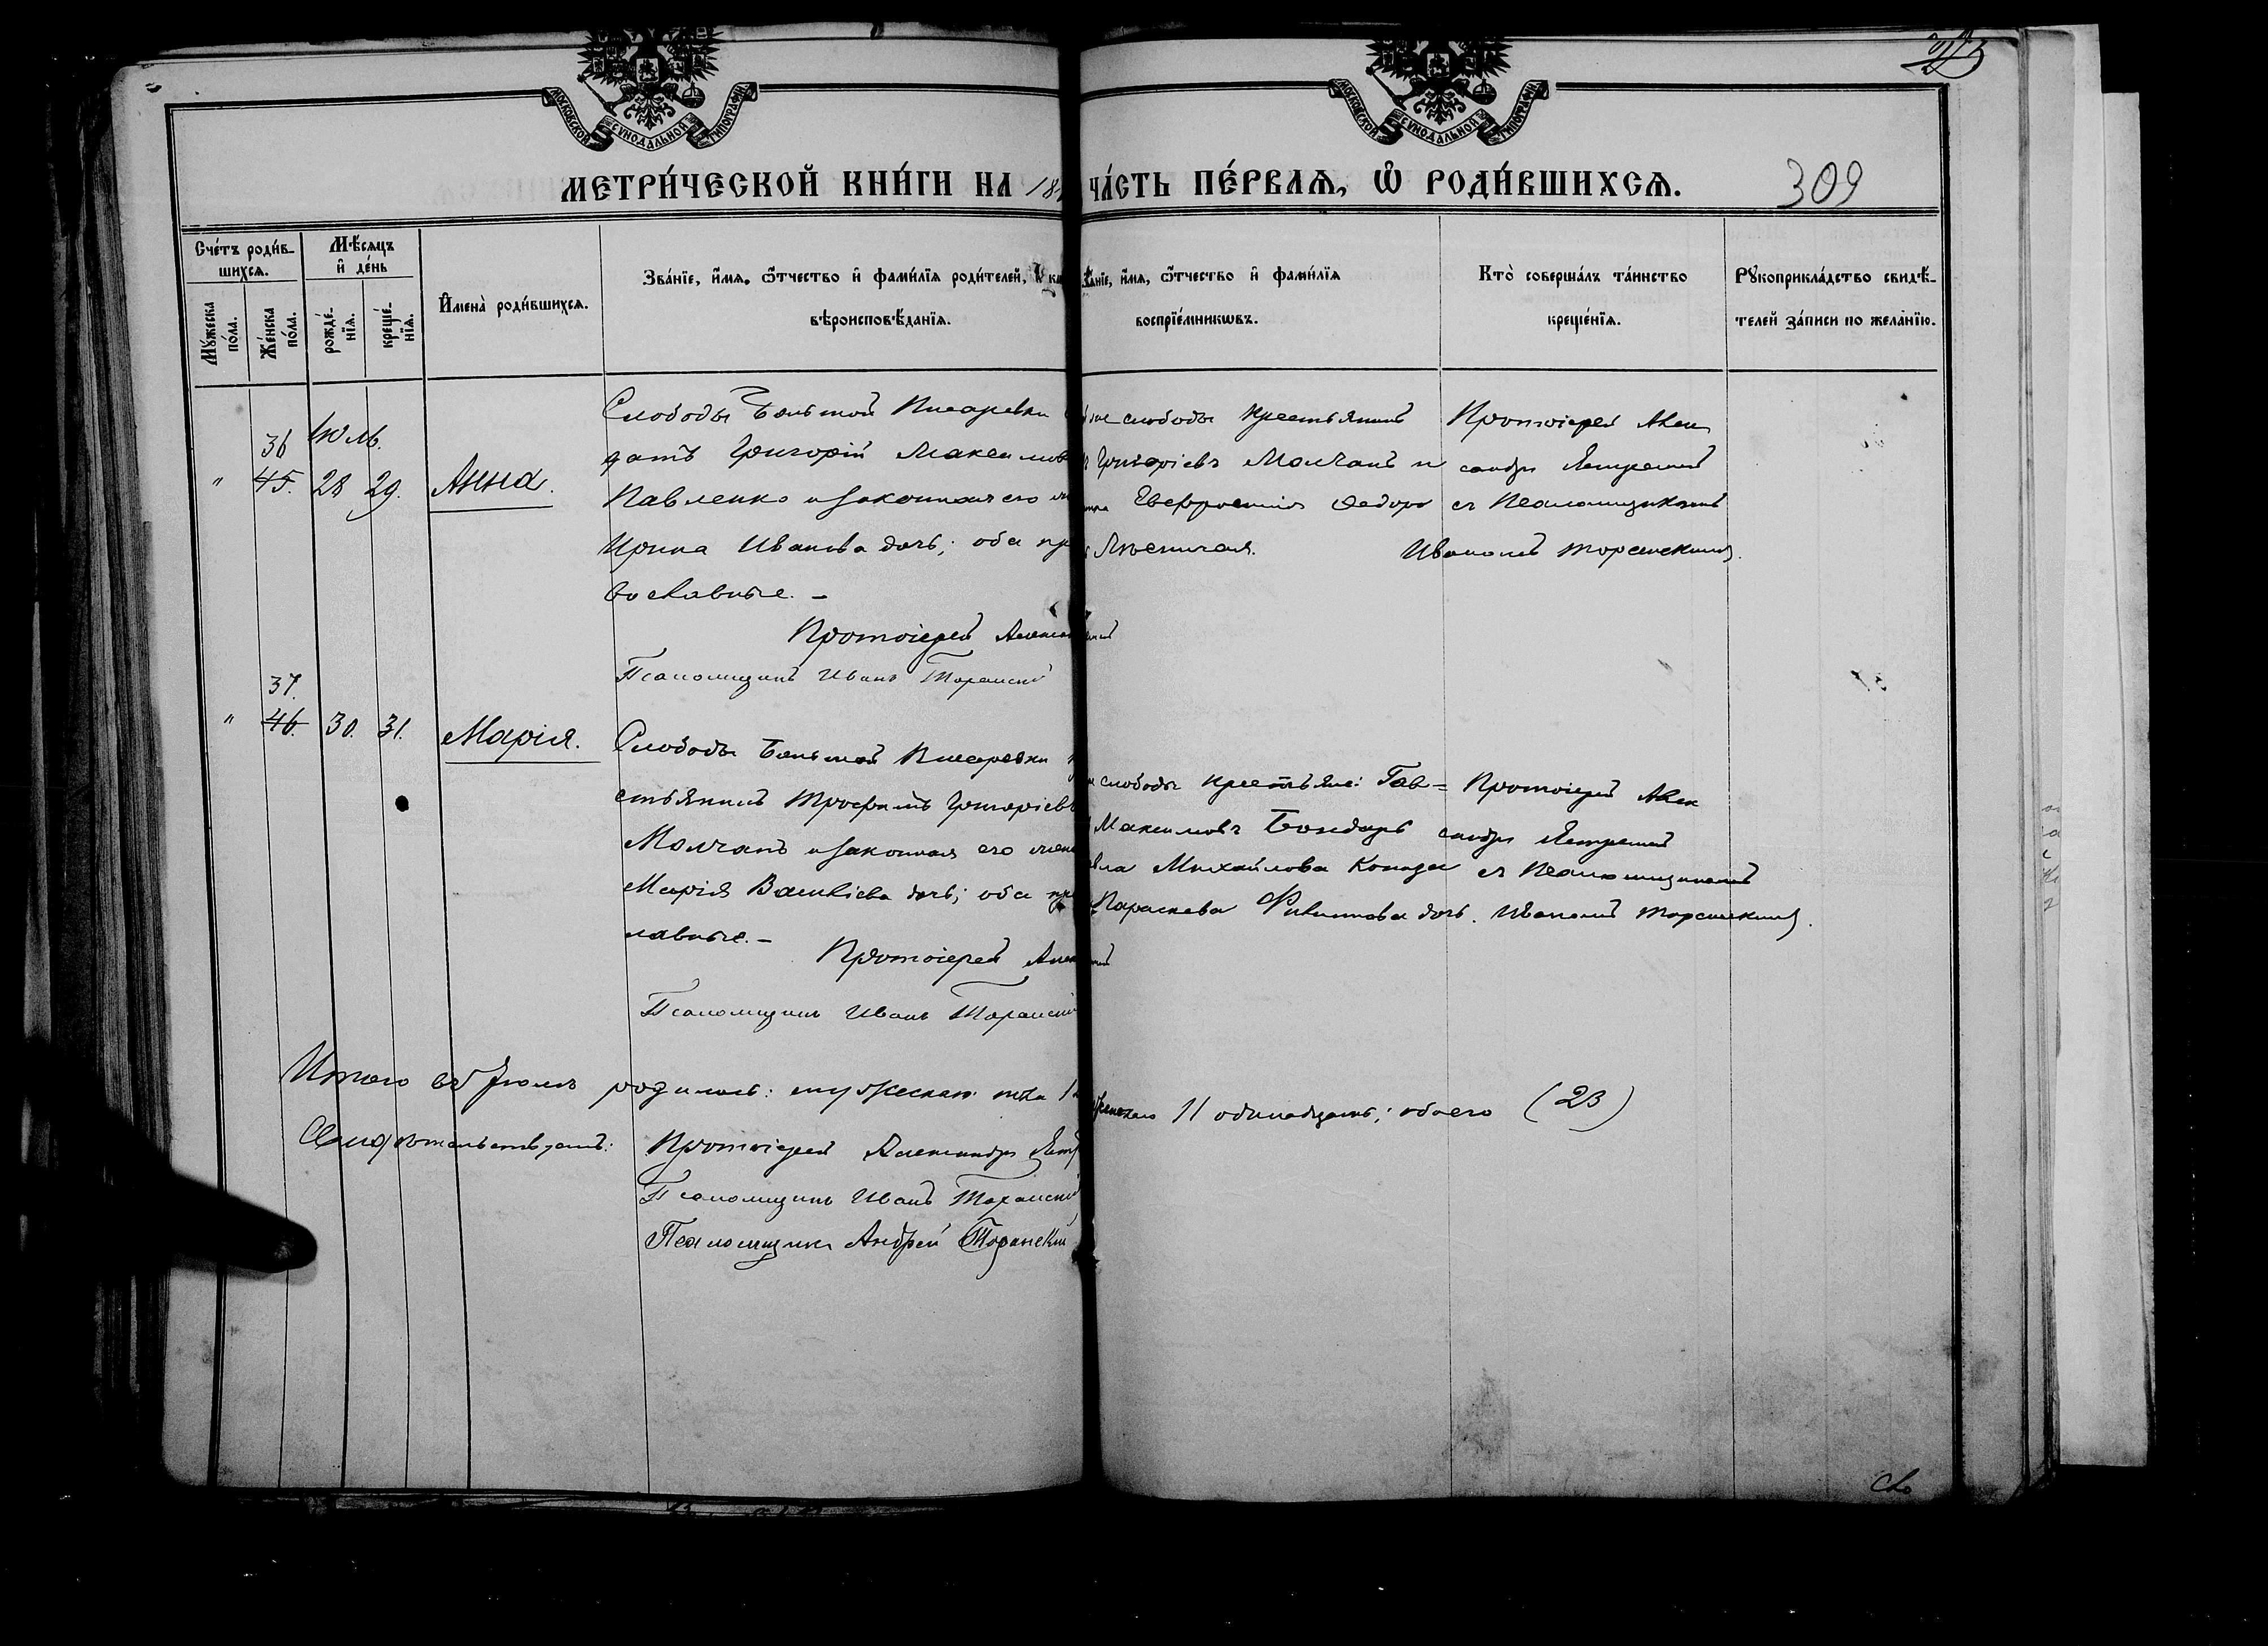 МОСКОВСКОЙ СУНОДАЛЬНОЙ ТИПОГРАФІИ
МОСКОВСКОЙ СУНОДАЛЬНОЙ ТИПОГРАФІИ
МЕТРИ́ЧЕСКОЙ КНИ́ГИ НА 18
ЧА́СТЬ ПЕ́РВАѦ, Ѡ РОДИ́ВШИХСѦ.
309
Сче́тъ роди́в-
шихсѧ.
Мѣ́сѧцъ
и де́нь
Му́жеска
по́ла.
Же́нска
по́ла.
рожде́-
нїѧ.
креще́-
нїѧ.
И҆мена̀ роди́вшихсѧ.
Зва́нїе, и҆́мѧ, ѻ҆́тчество и҆ фами́лїѧ роди́телей, и҆ как
вѣроисповѣ́данїѧ.
ва́нїе, и҆́мѧ, ѻ҆́тчество и҆ фами́лїѧ
воспрїе́мникѡвъ.
Кто̀ соверша́лъ та́инство
креще́нїѧ.
Рꙋкоприкла́дство свидѣ́-
телей за́писи по жела́нїю.
Іюль.
" 36 45. 28 29. Анна.
Слободы Большой Писаревки
датъ Григорій Максимов
Павленко и законная его
Ирина Иванова дочь; оба пра
вославные. –
Протоіерей Алексан
Псаломщикъ Иванъ Торанскій
слободы крестьянинъ
Григоріевъ Молчанъ и
Евфросинія Федоро
Протоіерей Алек
сандръ Ястремскій
съ Псаломщикомъ
Иваномъ Торанскимъ.
" 37. 46. 30. 31. Марія.
Слободы Большой Писаревки
стьянинъ Трофимъ Григоріевъ
Молчанъ и законная его жена
Марія Василіева дочь; оба пра
лавные. –
Протоіерей Алек
Псаломщикъ Иванъ Торанскій
слободы крестьяне: Гав=
Максимовъ Бондарь
Михайлова
Параскева Филиппова дочь.
Протоіерей Алек
сандръ Ястремскій
съ Псаломщикомъ
Иваномъ Торанскимъ.
Итого въ Іюлѣ родилось: мужескаго пола 1
женскаго 11 одинадцать; обоего (23)
Свидѣтельствуютъ: Протоіерей Александръ Ястр
Псаломщикъ Иванъ Торанскій
Псаломщикъ Андрей Торанскій